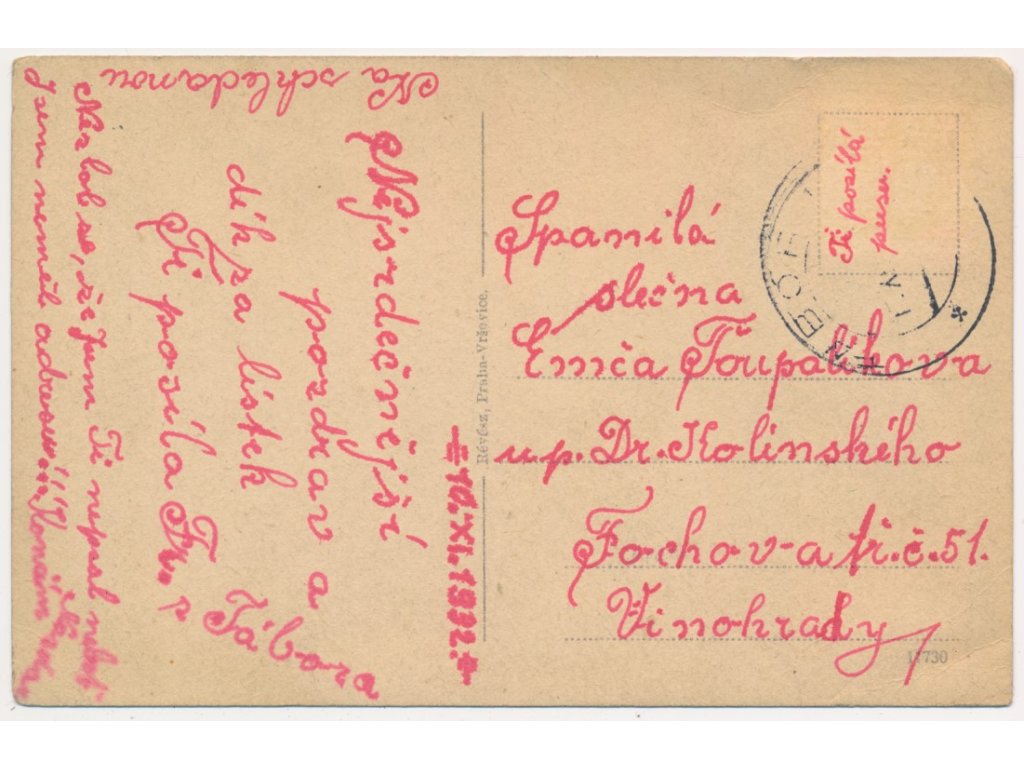 Na schledanou
Nejsrdečnější
pozdrav a
dík za lístek
Ti posílá Fr.
z Tábora
Nezlob se, že jsem Ti nepsal neboť
jsem neměl adresu!!!
10.XI.1922.
Révész, Praha-Vršovice.
Ti posílá
pusu.
TÁBOR
Spanilá
slečna
Emča Ťoupalíkova
u p. Dr. Kolinského
Fochova tř. č. 51.
Vinohrady
11730